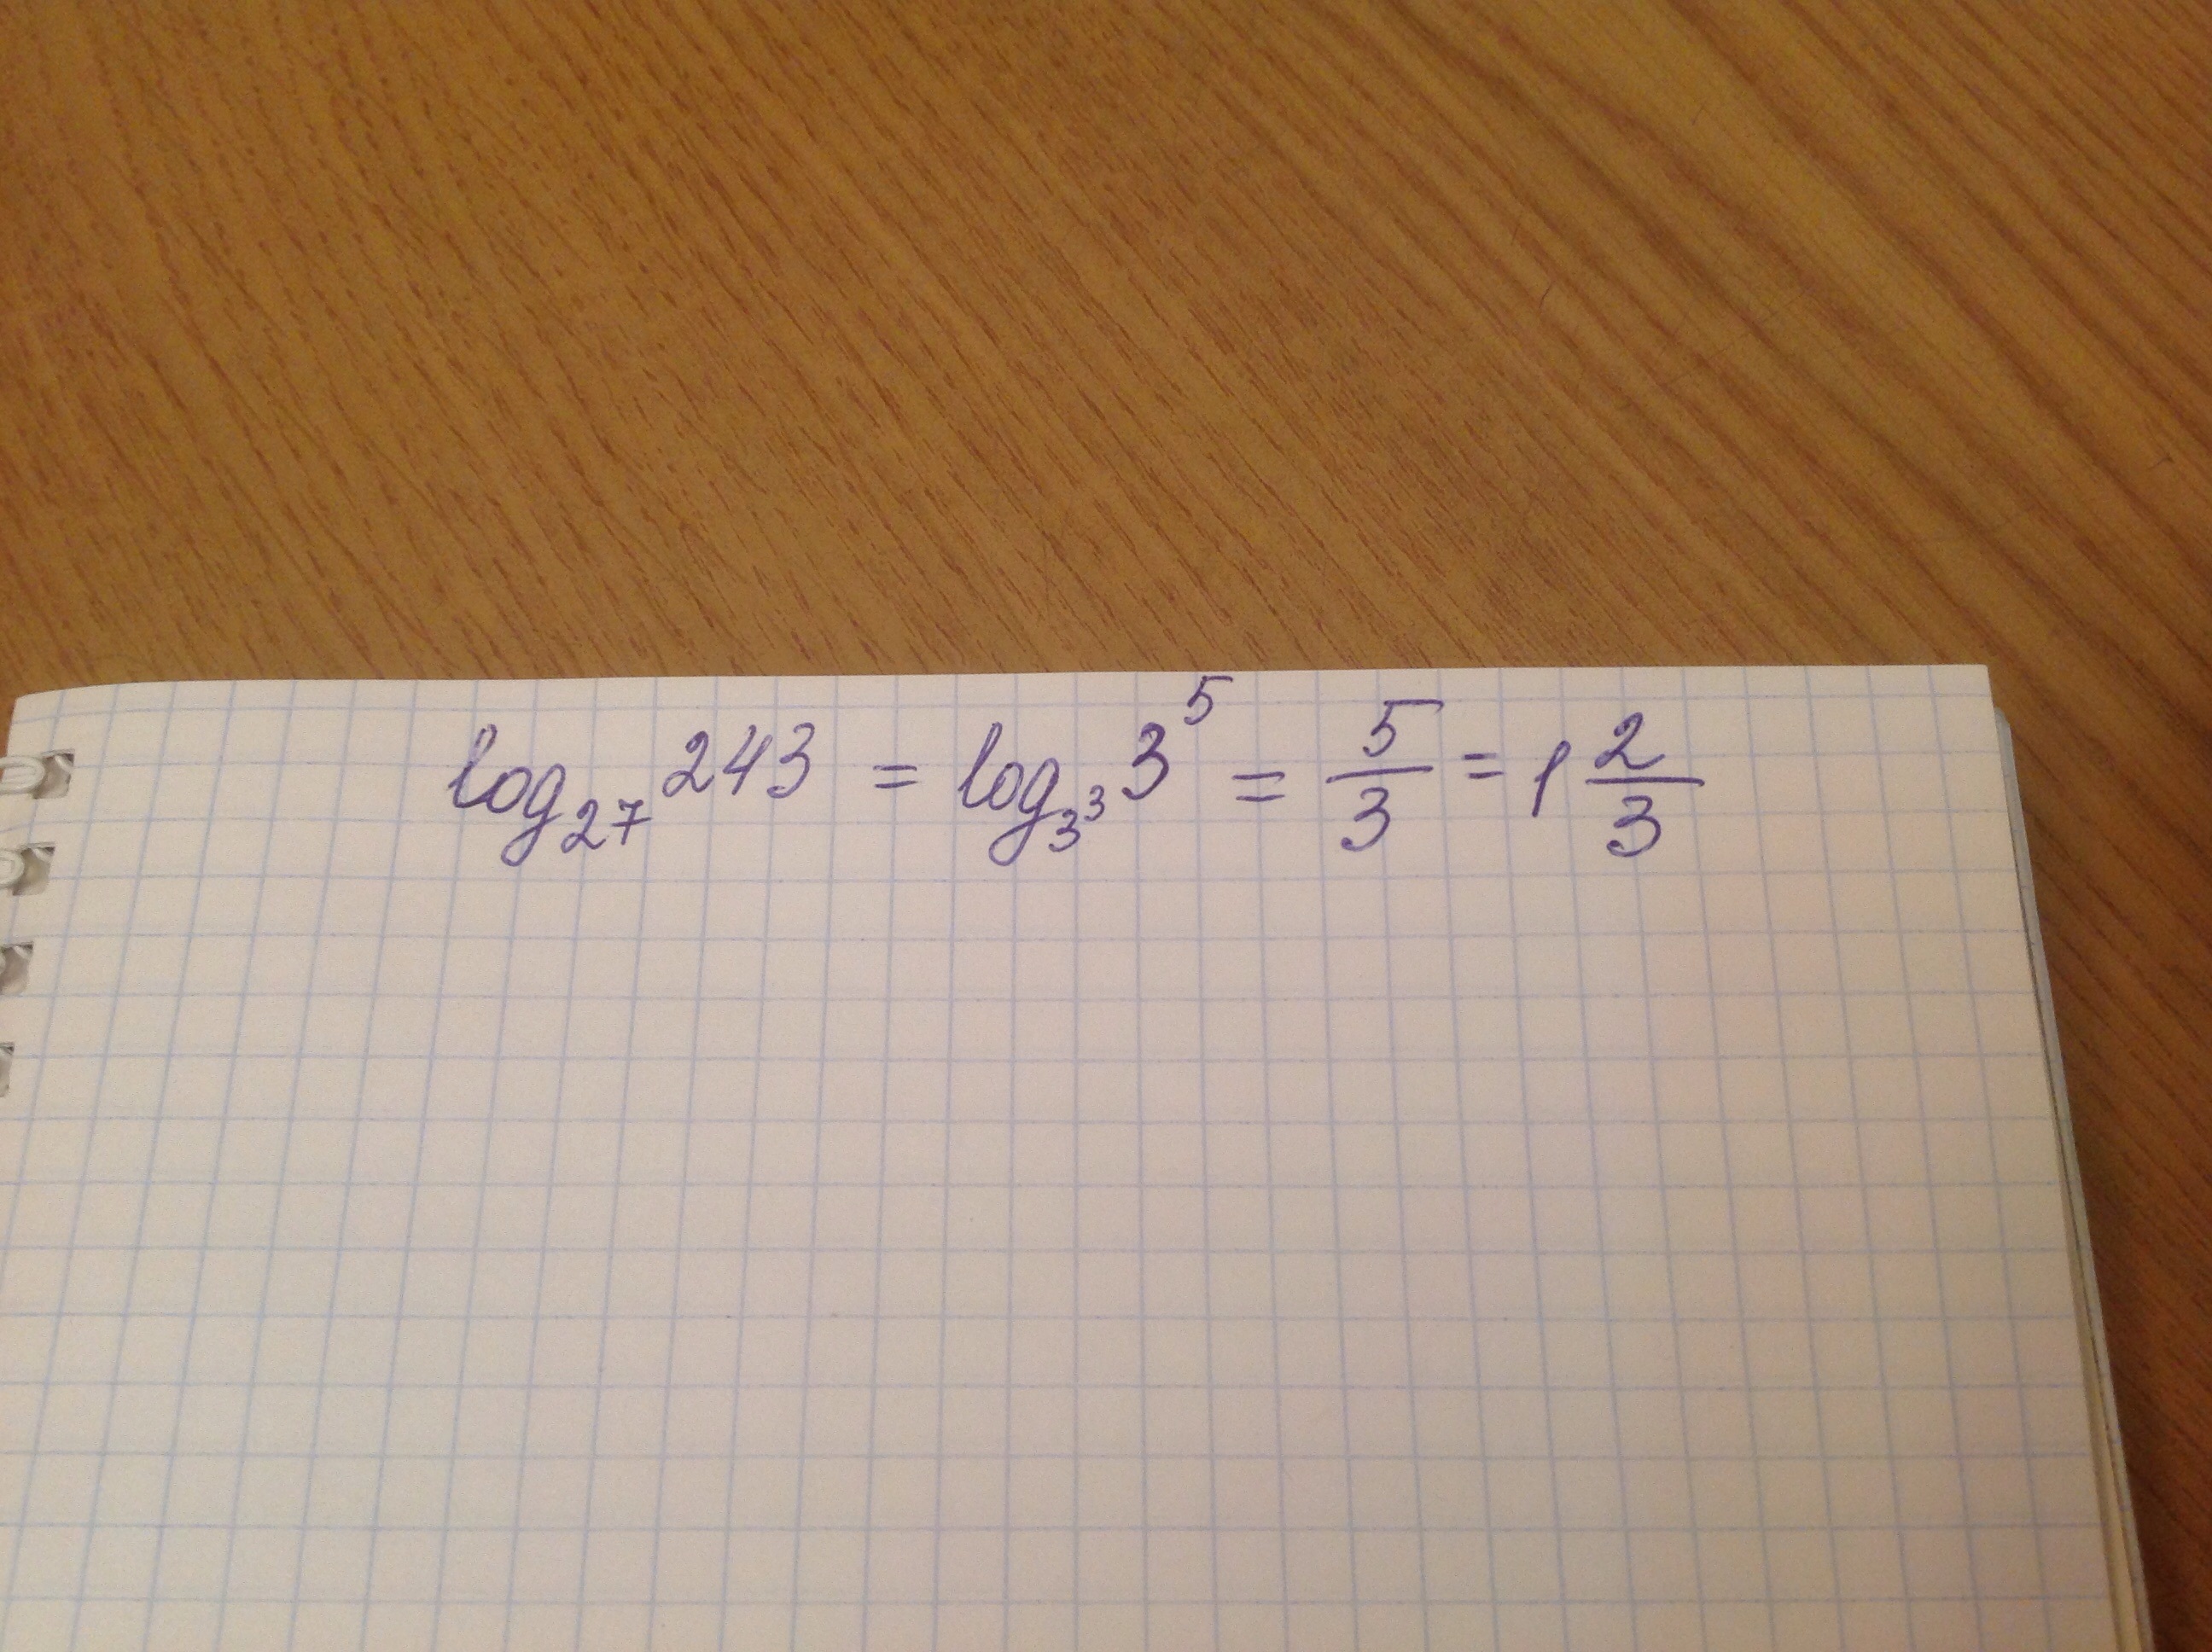 log₂₇ 243 = log₃³ 3⁵ = 5/3 = 1 2/3